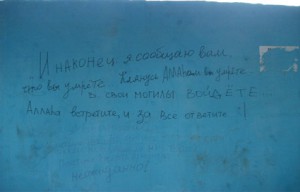 И наконец я сообщаю вам,
что вы умрете. Клянусь Аллахом вы умрете
В свои могилы войдете...
Аллаха встретите, и за все ответите :|